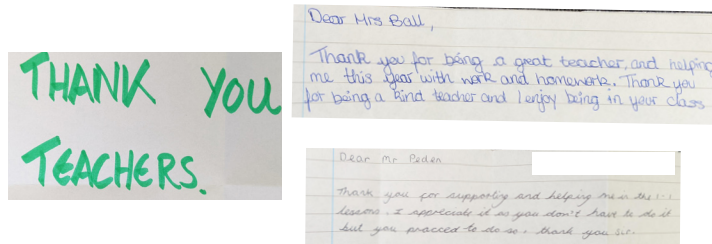 THANK YOU
TEACHERS.
Dear Mrs Ball,
Thank you for being a great teacher, and helping
me this year with work and homework. Thank you
for being a kind teacher and I enjoy being in your class
Dear Mr Peden
Thank you for supporting and helping me in the 1-1
lessons. I appreciate it as you don't have to do it
but you procced to do so, thank you sir.